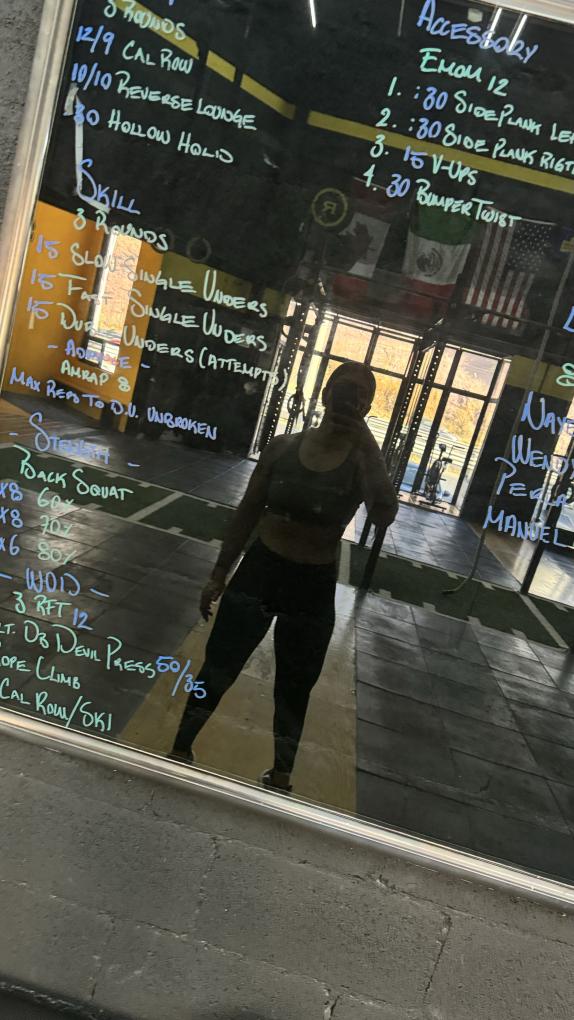 3 ROUNDS
12/9 CAL ROW
10/10 REVERSE LOUNGE
30 HOLLOW HOLD
SKILL
3 ROUNDS
15 SLOW SINGLE UNDERS
15 FAST SINGLE UNDERS
15 DUB UNDERS (ATTEMPTS)
- ADVANCE -
AMRAP 8
MAX REPS TO D.U. UNBROKEN
- STENGTH -
BACK SQUAT
X8 60%
X8 70%
X6 80%
- WOD -
3 RFT
12
LT. DB DEVIL PRESS 50/35
OPE CLIMB
CAL ROW/SKI
ACCESSORY
EMOM 12
1. :30 SIDE PLANK LE
2. :30 SIDE PLANK RIGT
3. 15 V-UPS
4. 30 BUMPER TWIST
WENDY
PERLA
MANUEL